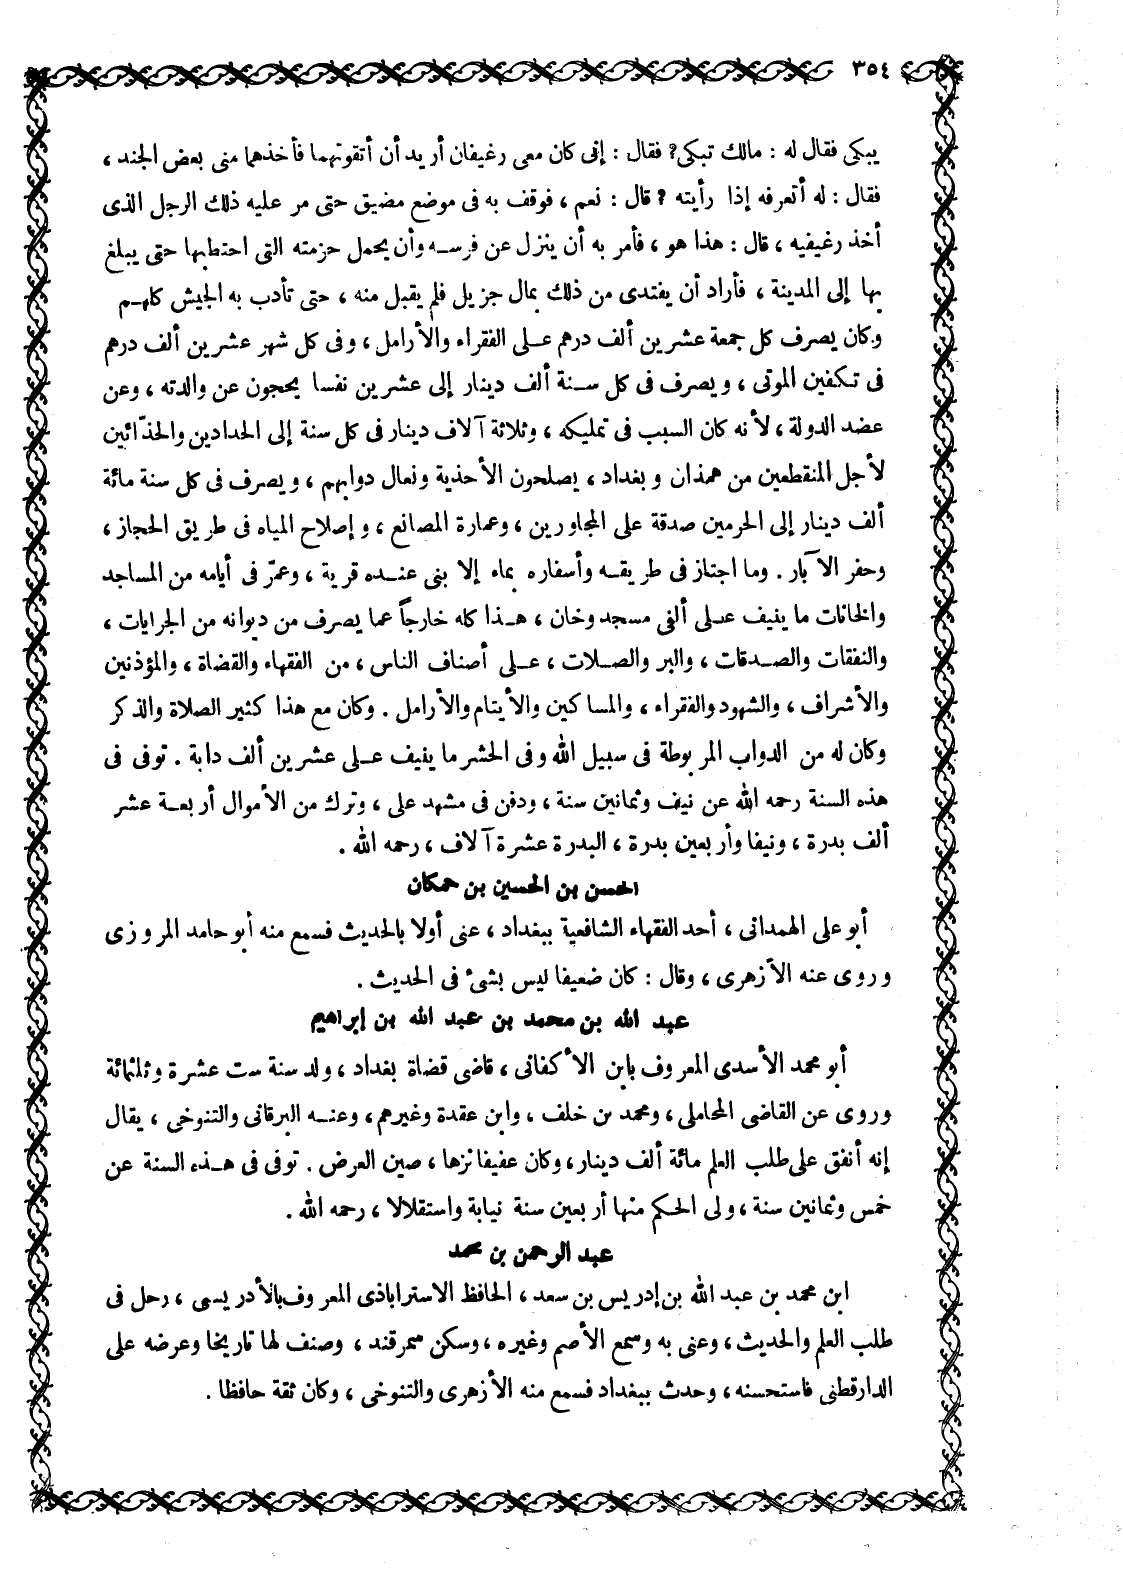 ٣٥٤
يبكى فقال له : مالك تبكى؟ فقال : إنى كان معى رغيفان أريد أن أتقوتهما فأخذهما منى بعض الجند ،
فقال : له أتعرفه إذا رأيته ؟ قال : نعم ، فوقف به فى موضع مضيق حتى مر عليه ذلك الرجل الذى
أخذ رغيفيه ، قال : هذا هو ، فأمر به أن ينزل عن فرسه وأن يحمل حزمته التى احتطبها حتى يبلغ
بها إلى المدينة ، فأراد أن يفتدى من ذلك بمال جزيل فلم يقبل منه ، حتى تأدب به الجيش كلهم
وكان يصرف كل جمعة عشرين ألف درهم على الفقراء والأرامل ، وفى كل شهر عشرين ألف درهم
فى تكفين الموتى ، ويصرف فى كل سنة ألف دينار إلى عشرين نفسا يحجون عن والدته ، وعن
عضد الدولة ، لأنه كان السبب فى تمليكه ، وثلاثة آلاف دينار فى كل سنة إلى الحدادين والحذّائين
لأجل المنقطعين من همذان وبغداد ، يصلحون الأحذية ونعال دوابهم ، ويصرف فى كل سنة مائة
ألف دينار إلى الحرمين صدقة على المجاورين ، وعمارة المصانع ، وإصلاح المياه فى طريق الحجاز ،
وحفر الآبار . وما اجتاز فى طريقه وأسفاره بماء إلا بنى عنده قرية ، وعمّر فى أيامه من المساجد
والخانات ما ينيف على ألفى مسجد وخان ، هذا كله خارجاً عما يصرف من ديوانه من الجرايات ،
والنفقات والصدقات ، والبر والصلات ، على أصناف الناس ، من الفقهاء والقضاة ، والمؤذنين
والأشراف ، والشهود والفقراء ، والمساكين والأيتام والأرامل . وكان مع هذا كثير الصلاة والذكر
وكان له من الدواب المربوطة فى سبيل الله وفى الحشر ما ينيف على عشرين ألف دابة . توفى فى
هذه السنة رحمه الله عن نيف وثمانين سنة ، ودفن فى مشهد على ، وترك من الأموال أربعة عشر
ألف بدرة ، ونيفا وأربعين بدرة ، البدرة عشرة آلاف ، رحمه الله .
الحسن بن الحسين بن حمكان
أبو على الهمدانى ، أحد الفقهاء الشافعية ببغداد ، عنى أولا بالحديث فسمع منه أبو حامد المروزى
وروى عنه الأزهرى ، وقال : كان ضعيفا ليس بشئ فى الحديث .
عبد الله بن محمد بن عبد الله بن إبراهيم
أبو محمد الأسدى المعروف بابن الأكفانى ، قاضى قضاة بغداد ، ولد سنة ست عشرة وثلثمائة
وروى عن القاضى المحاملى ، ومحمد بن خلف ، وابن عقدة وغيرهم ، وعنه البرقانى والتنوخى ، يقال
إنه أنفق على طلب العلم مائة ألف دينار ، وكان عفيفا نزها ، صين العرض . توفى فى هذه السنة عن
خمس وثمانين سنة ، ولى الحكم منها أربعين سنة نيابة واستقلالا ، رحمه الله .
عبد الرحمن بن محمد
ابن محمد بن عبد الله بن إدريس بن سعد ، الحافظ الاستراباذى المعروف بالأدريسى ، رحل فى
طلب العلم والحديث ، وعنى به وسمع الأصم وغيره ، وسكن سمرقند ، وصنف لها تاريخا وعرضه على
الدارقطنى فاستحسنه ، وحدث ببغداد فسمع منه الأزهرى والتنوخى ، وكان ثقة حافظا .